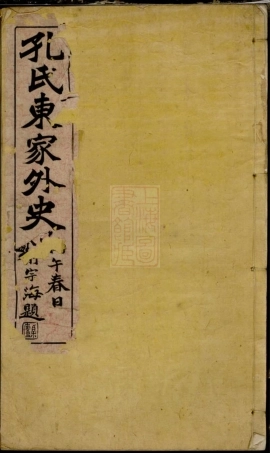 孔氏東家外史
午春日
海題